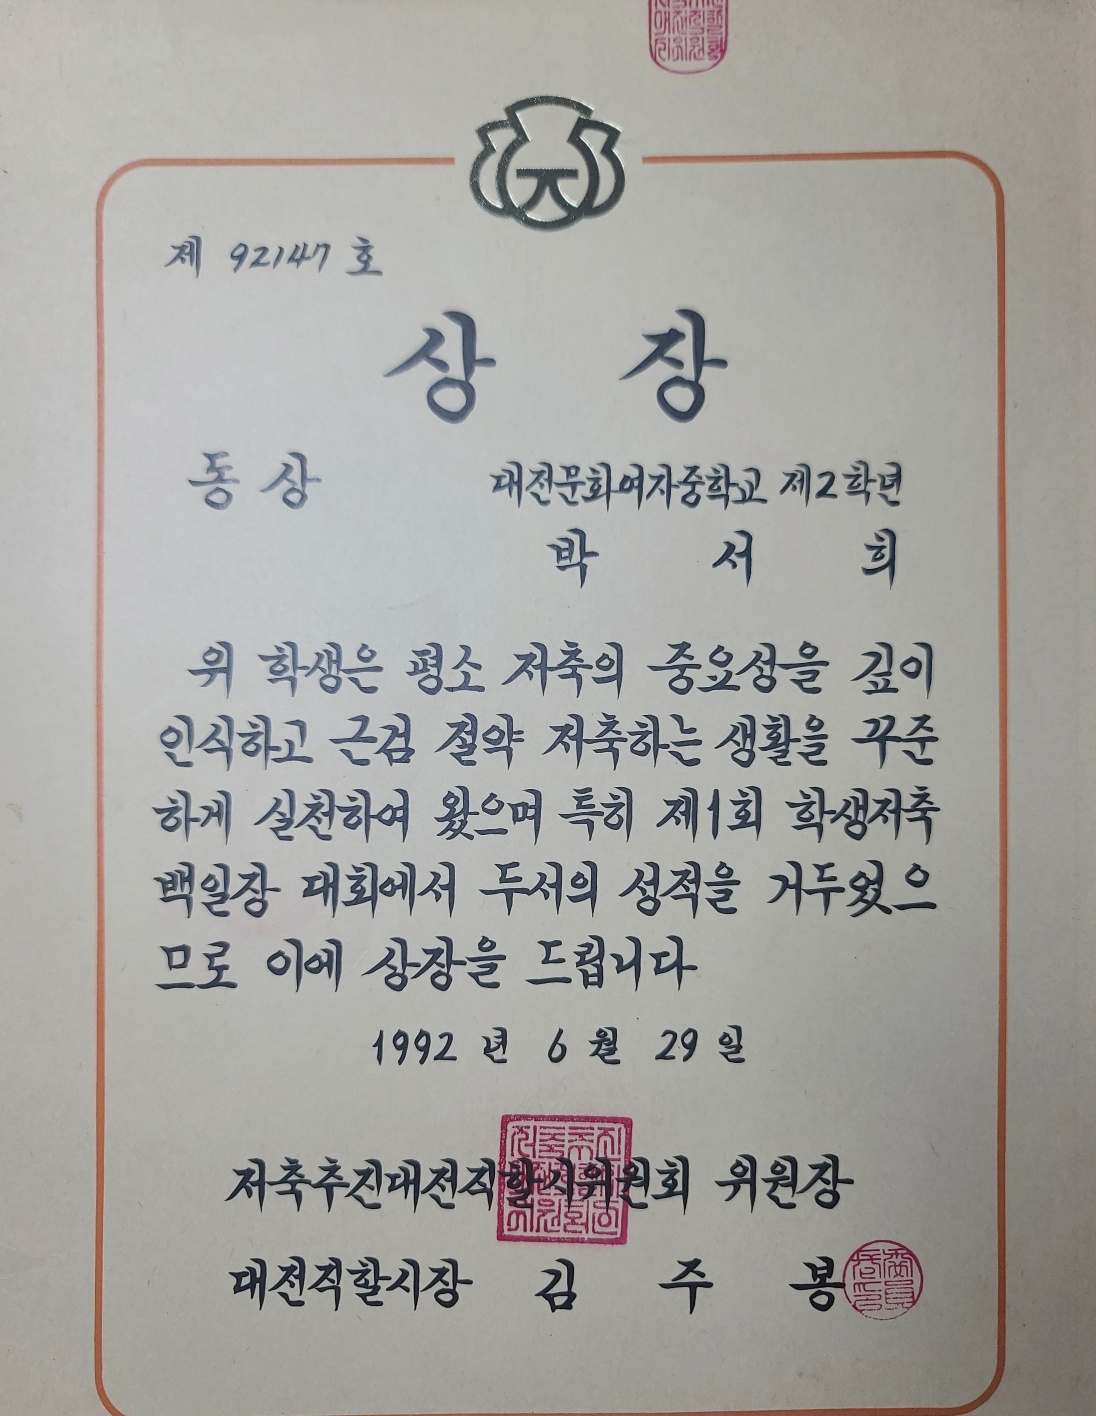 제 92147 호
상 장
동상
대전문화여자중학교 제2학년
박 서 희
위 학생은 평소 저축의 중요성을 깊이
인식하고 근검 절약 저축하는 생활을 꾸준
하게 실천하여 왔으며 특히 제1회 학생저축
백일장 대회에서 두서의 성적을 거두었으
므로 이에 상장을 드립니다
1992 년 6 월 29 일
저축추진대전직할시위원회 위원장
대전직할시장 김 주 봉